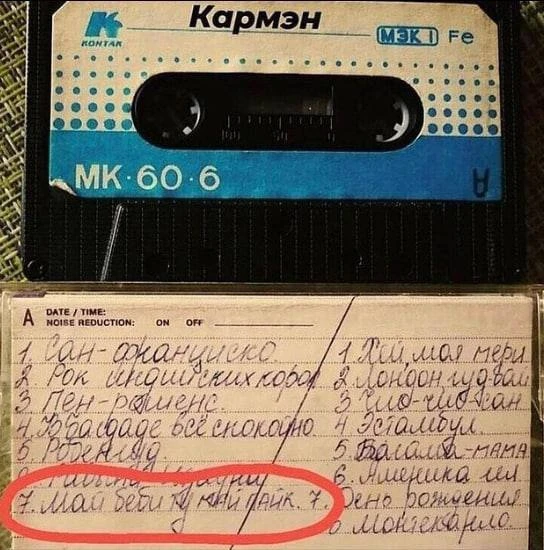 КОНТАК
Кармэн
МЭК I Fe
МК·60·6
A
A DATE / TIME:
NOISE REDUCTION: ON OFF
1. Сан-франциско
2. Рок индийских корол
3 Пен-рашенс.
4. В Багдаде все спокойно
5. Робенгуд
7. Май беби ту май лайк.
1 Хей, моя мери
2. Лондон гуд бай
3 Чио-чио-сан
4 Эстамбул
5. Багама-мама
6. Америка
7. День рождения
Монтекарло.